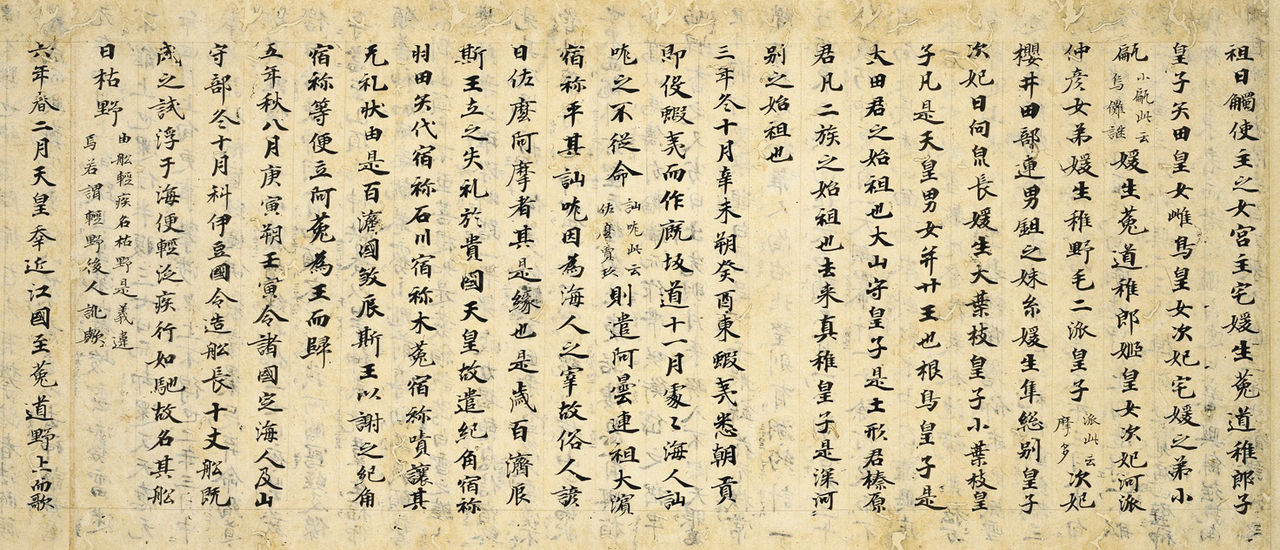 祖日觸使主之女宮主宅媛生菟道稚郎子
皇子矢田皇女雌鳥皇女次妃宅媛之弟小
甂小甂此云烏儺謎媛生菟道稚郎姬皇女次妃河派
仲彦女弟媛生稚野毛二派皇子派此云摩多次妃
櫻井田部連男鉏之妹糸媛生隼総別皇子
次妃日向泉長媛生大葉枝皇子小葉枝皇
子凡是天皇男女并廿王也根鳥皇子是
大田君之始祖也大山守皇子是土形君榛原
君凡二族之始祖也去来真稚皇子是深河
別之始祖也
三年冬十月辛未朔癸酉東蝦夷悉朝貢
即役蝦夷而作厩坂道十一月處〻海人訕
哤之不従命訕哤此云佐麼賣玖則遣阿曇連祖大濱
宿祢平其訕哤因為海人之宰故俗人諺
曰佐麼阿摩者其是縁也是歳百濟辰
斯王立之失礼於貴國天皇故遣紀角宿祢
羽田矢代宿祢石川宿祢木菟宿祢嘖讓其
无礼狀由是百濟國敘辰斯王以謝之紀角
宿祢等便立阿菟為王而歸
五年秋八月庚寅朔壬寅令諸國定海人及山
守部冬十月科伊豆國令造舩長十丈舩既
成之試浮于海便輕泛疾行如馳故名其舩
曰枯野由舩輕疾名枯野是義違焉若謂輕野後人訛歟
六年春二月天皇幸近江國至菟道野上而歌